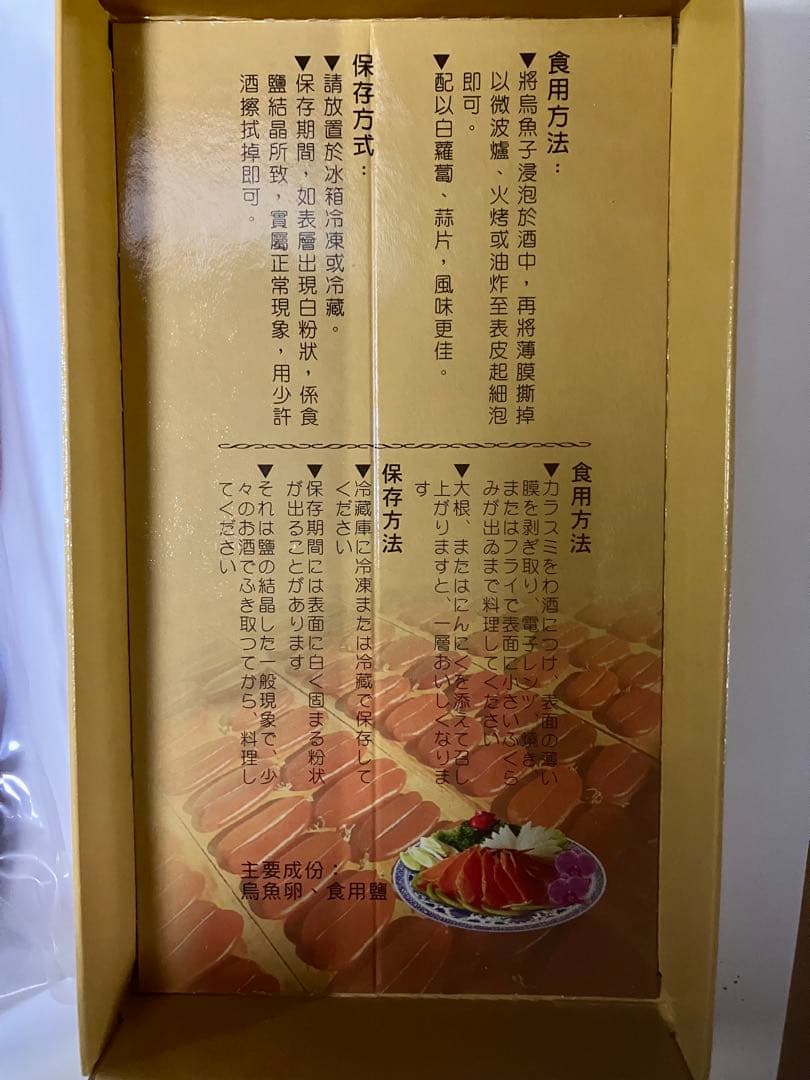 食用方法：
▼將烏魚子浸泡於酒中，再將薄膜撕掉
以微波爐、火烤或油炸至表皮起細泡
即可。
▼配以白蘿蔔、蒜片，風味更佳。
保存方式：
▼請放置於冰箱冷凍或冷藏。
▼保存期間，如表層出現白粉狀，係食
鹽結晶所致，實屬正常現象，用少許
酒擦拭掉即可。
食用方法
▼カラスミをわ酒につけ、表面の薄い
膜を剥ぎ取り、電子レンツ、燒き、
またはフライで表面に小さいふくら
みが出ゐまで料理してください
▼大根、またはにんにくを添えて召し
上がりますと、一層おいしくなりま
す
保存方法
▼冷蔵庫に冷凍または冷蔵で保存して
ください
▼保存期間には表面に白く固まる粉状
が出ることがあります
▼それは鹽の結晶した一般現象で、少
々のお酒でふき取つてから、料理し
てください
主要成份：
烏魚卵、食用鹽